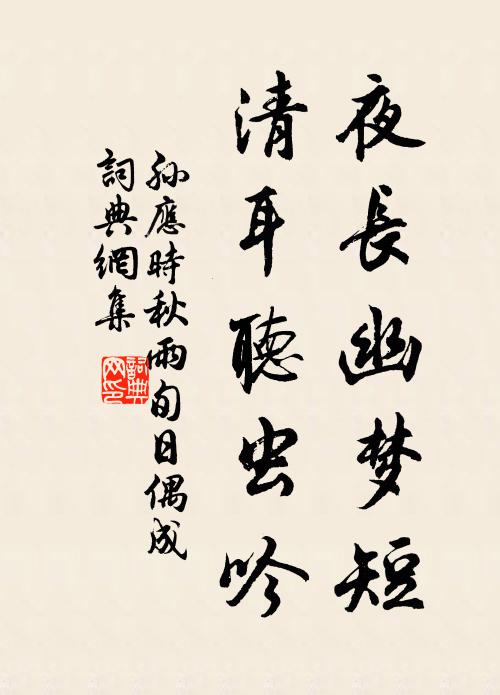 夜長幽梦短
清耳聽虫吟
孙應時秋雨旬日偶成
詞典網集
詞典
网印